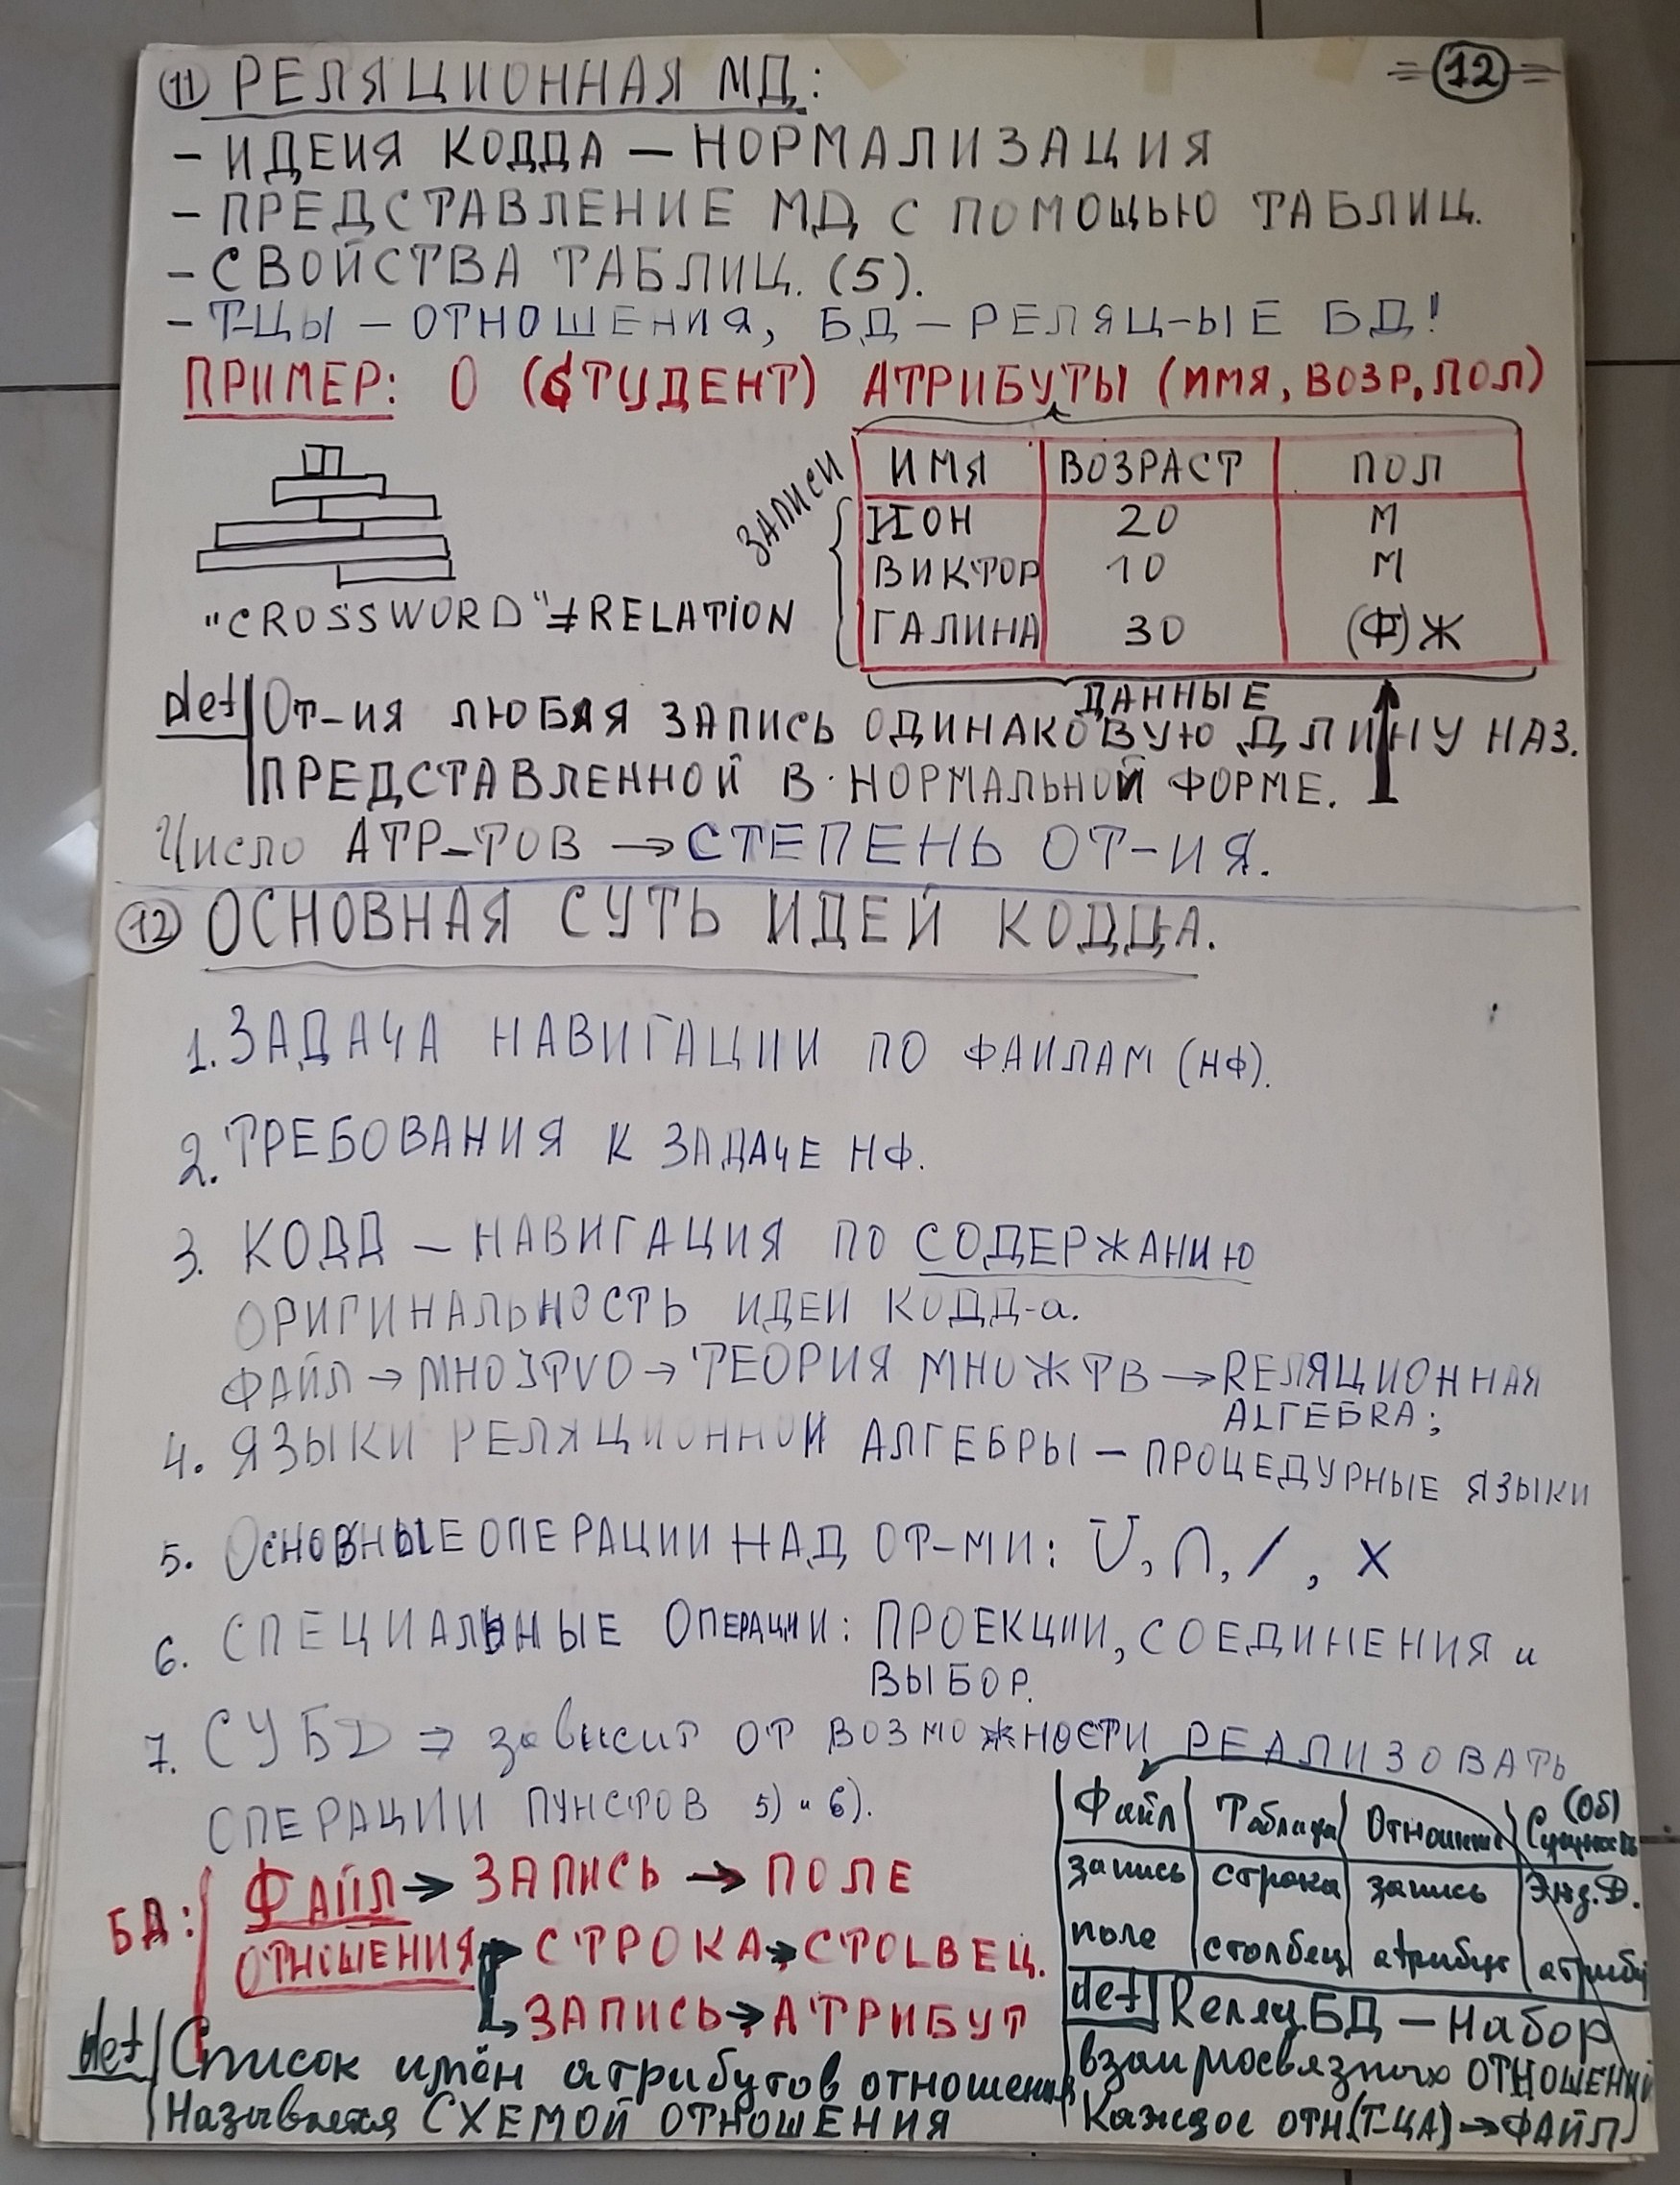 ⑪ РЕЛЯЦИОННАЯ МД:
=⑫=
– ИДЕИЯ КОДДА – НОРМАЛИЗАЦИЯ
– ПРЕДСТАВЛЕНИЕ МД С ПОМОЩЬЮ ТАБЛИЦ.
– СВОЙСТВА ТАБЛИЦ. (5).
– Т-ЦЫ – ОТНОШЕНИЯ, БД – РЕЛЯЦ-ЫЕ БД!
ПРИМЕР: О (СТУДЕНТ) АТРИБУТЫ (ИМЯ, ВОЗР, ПОЛ)
ЗАПИСИ
ИМЯ ВОЗРАСТ ПОЛ
ИОН 20 М
ВИКТОР 10 М
ГАЛИНА 30 (Ф)Ж
"CROSSWORD" ≠ RELATION
ДАННЫЕ
def ОТ-ИЯ ЛЮБАЯ ЗАПИСЬ ОДИНАКОВУЮ ДЛИНУ НАЗ.
ПРЕДСТАВЛЕННОЙ В НОРМАЛЬНОЙ ФОРМЕ.
Число АТР-ТОВ → СТЕПЕНЬ ОТ-ИЯ.
⑫ ОСНОВНАЯ СУТЬ ИДЕЙ КОДДА.
1. ЗАДАЧА НАВИГАЦИИ ПО ФАИЛАМ (НФ).
2. ТРЕБОВАНИЯ К ЗАДАЧЕ НФ.
3. КОДД – НАВИГАЦИЯ ПО СОДЕРЖАНИЮ
ОРИГИНАЛЬНОСТЬ ИДЕИ КОДД-а.
ФАЙЛ → → ТЕОРИЯ МНОЖТВ → RЕЛЯЦИОННАЯ
АLГЕБRА;
4. ЯЗЫКИ РЕЛЯЦИОННОЙ АЛГЕБРЫ – ПРОЦЕДУРНЫЕ ЯЗЫКИ
5. ОСНОВНЫЕ ОПЕРАЦИИ НАД ОТ-МИ: U, ∩, /, X
6. СПЕЦИАЛЬНЫЕ ОПЕРАЦИИ: ПРОЕКЦИИ, СОЕДИНЕНИЯ и
ВЫБОР.
7. СУБД ⇒ зависит ОТ ВОЗМОЖНОСТИ РЕАЛИЗОВАТЬ
ОПЕРАЦИИ ПУНСТОВ 5) и 6).
БД: ФАЙЛ → ЗАПИСЬ → ПОЛЕ
ОТНОШЕНИЯ → СТРОКА → СТОLВЕЦ.
↳ ЗАПИСЬ → АТРИБУТ
def Список имён атрибутов отношения
Называется СХЕМОЙ ОТНОШЕНИЯ
Файл Таблица Отношение Сущность (Об)
запись строка запись Экз.Д.
поле столбец атрибут атрибу
def RеляцБД – Набор
взаимосвязных ОТНОШЕНИЙ
Каждое ОТН(Т-ЦА) → ФАЙЛ